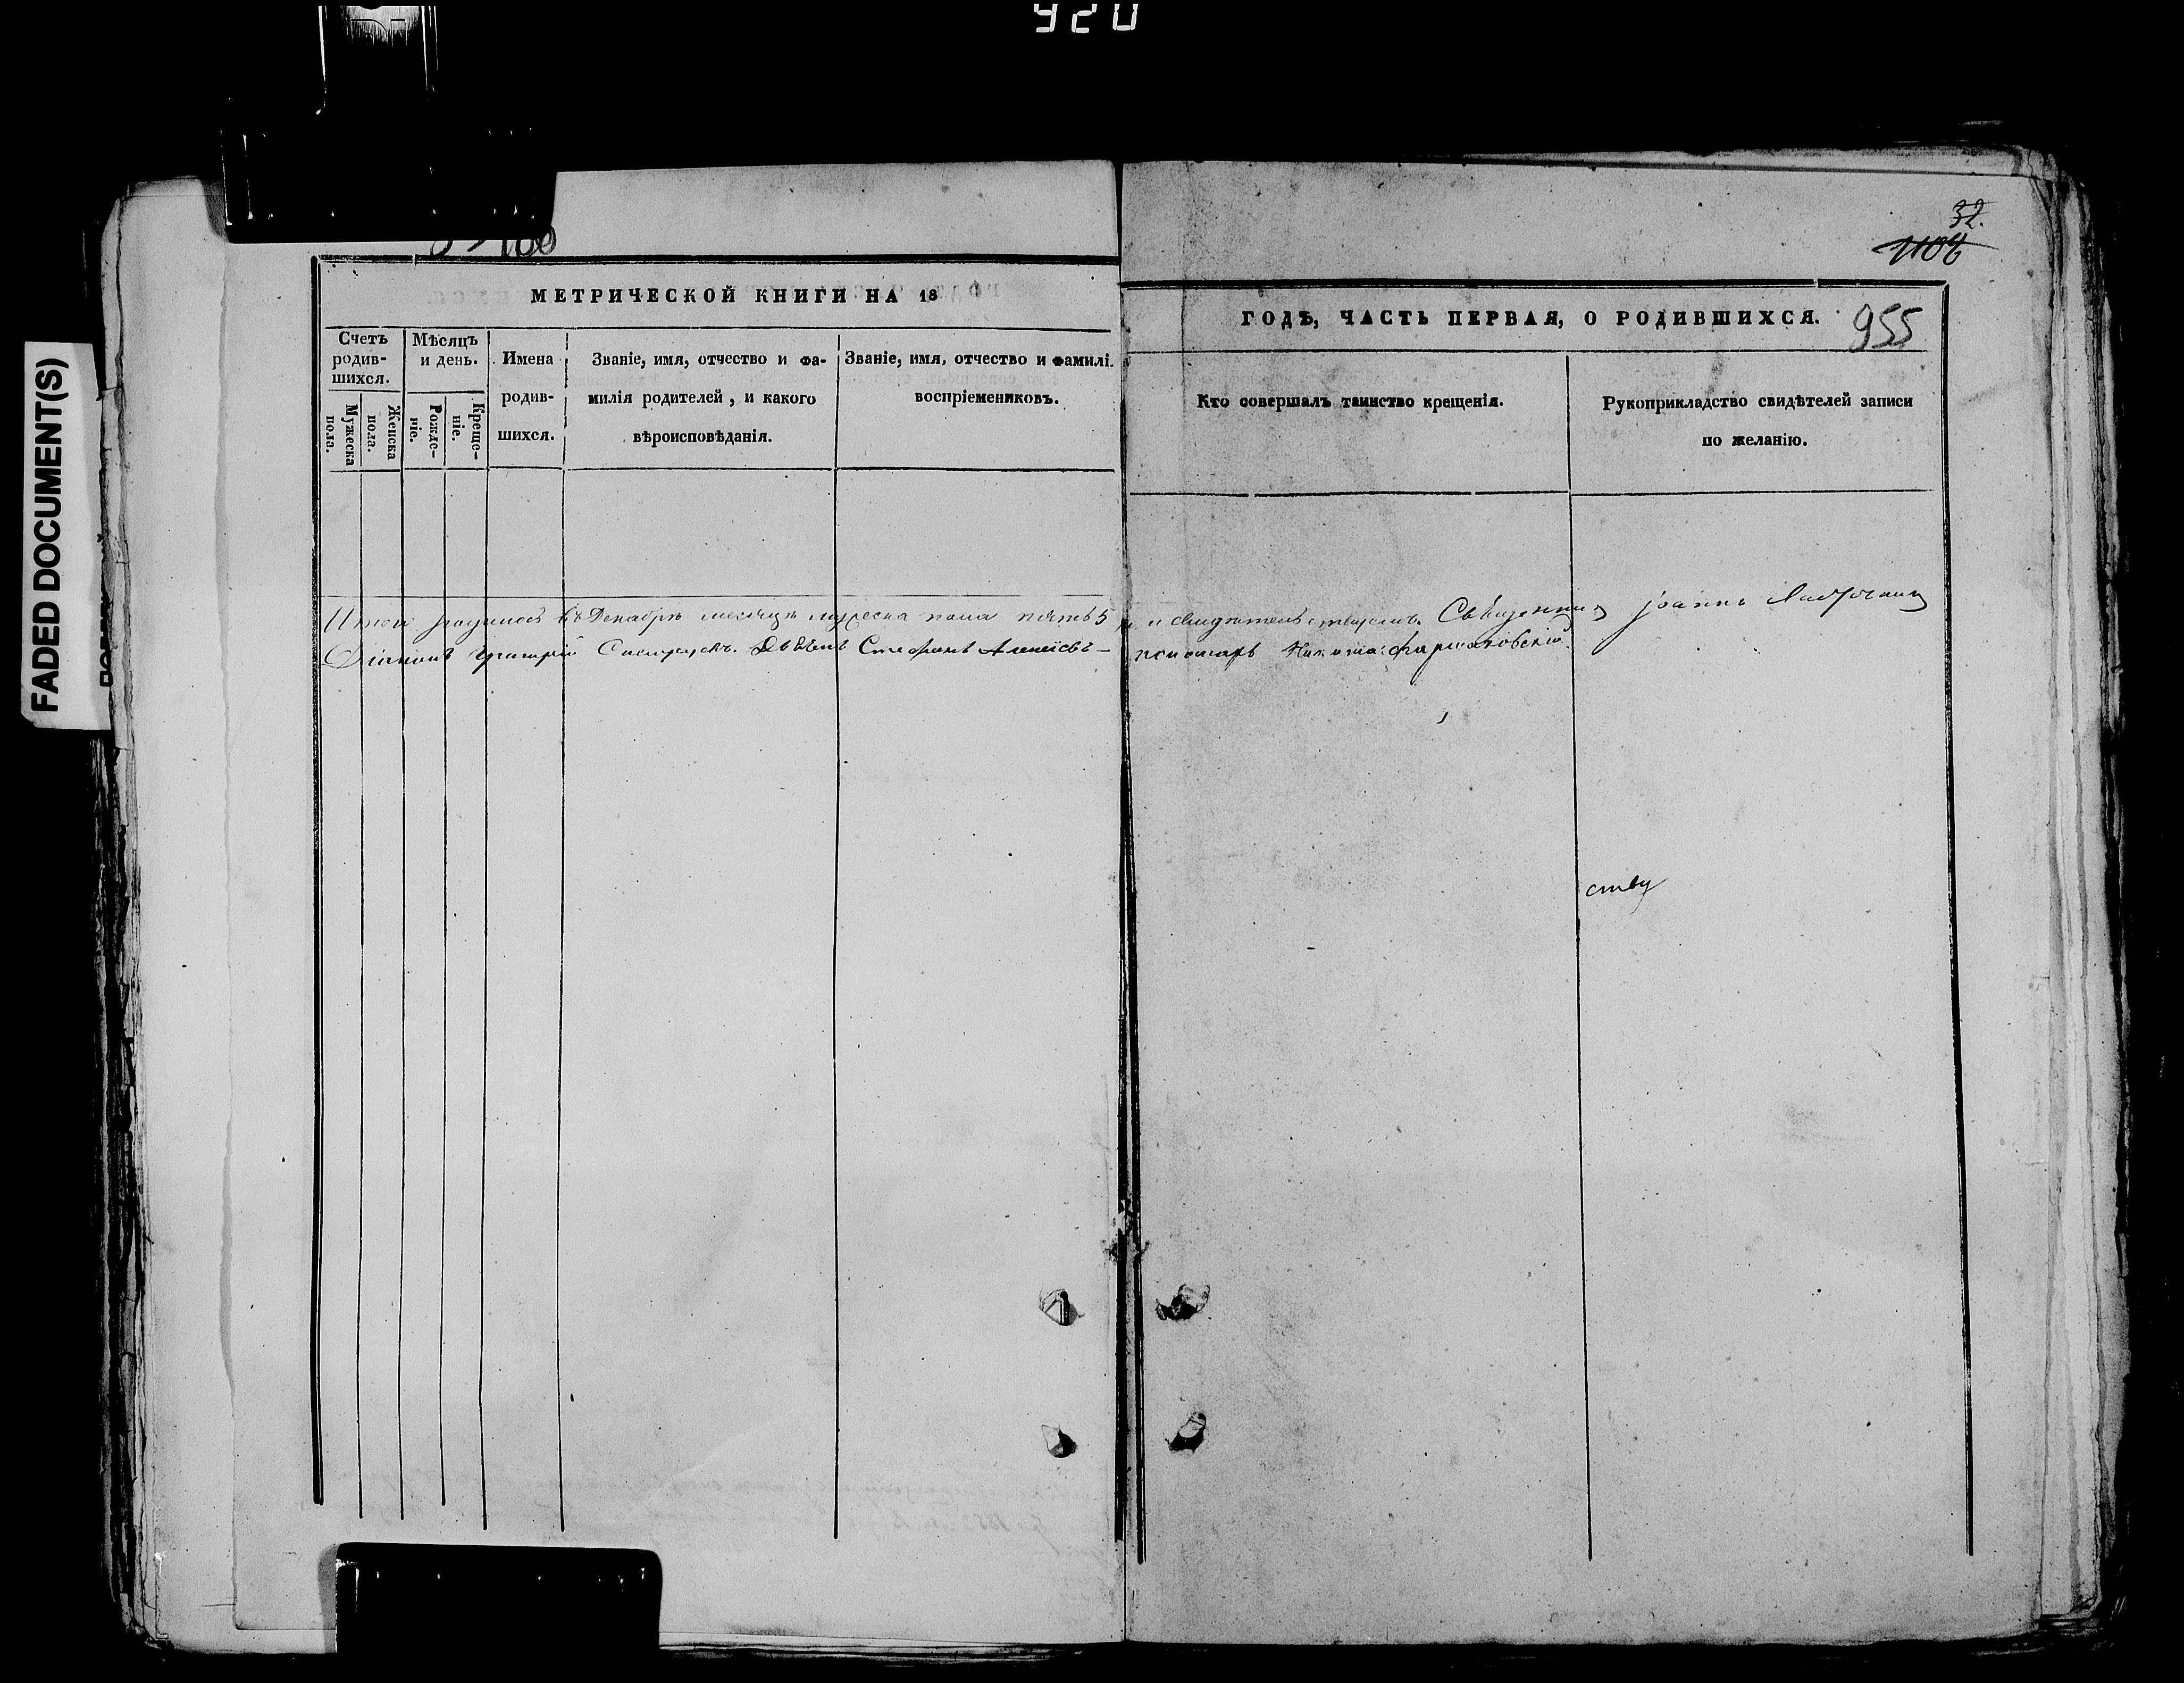 920
FADED DOCUMENT(S)
32.
1104
955
МЕТРИЧЕСКОЙ КНИГИ НА 18
ГОДѢ, ЧАСТЬ ПЕРВАЯ, О РОДИВШИХСЯ.
Счетъ родив-шихся.
Мужеска пола.
Женска пола.
Мѣсяцъ и день.
Рожде-ніе.
Креще-ніе.
Имена
родив-
шихся.
Званіе, имя, отчество и фа-
милія родителей, и какого
вѣроисповѣданія.
Званіе, имя, отчество и фамилі.
воспріемениковъ.
Кто совершалъ таинство крещенія.
Рукоприкладство свидѣтелей записи
по желанію.
Итого родилось Декабрѣ месяцѣ мужеска пола пять 5 и свидѣтельствуемъ. Священникъ Іоаннъ
Діаконъ Григорій Дьячекъ Стефанъ Алексіевъ пономарь
ству